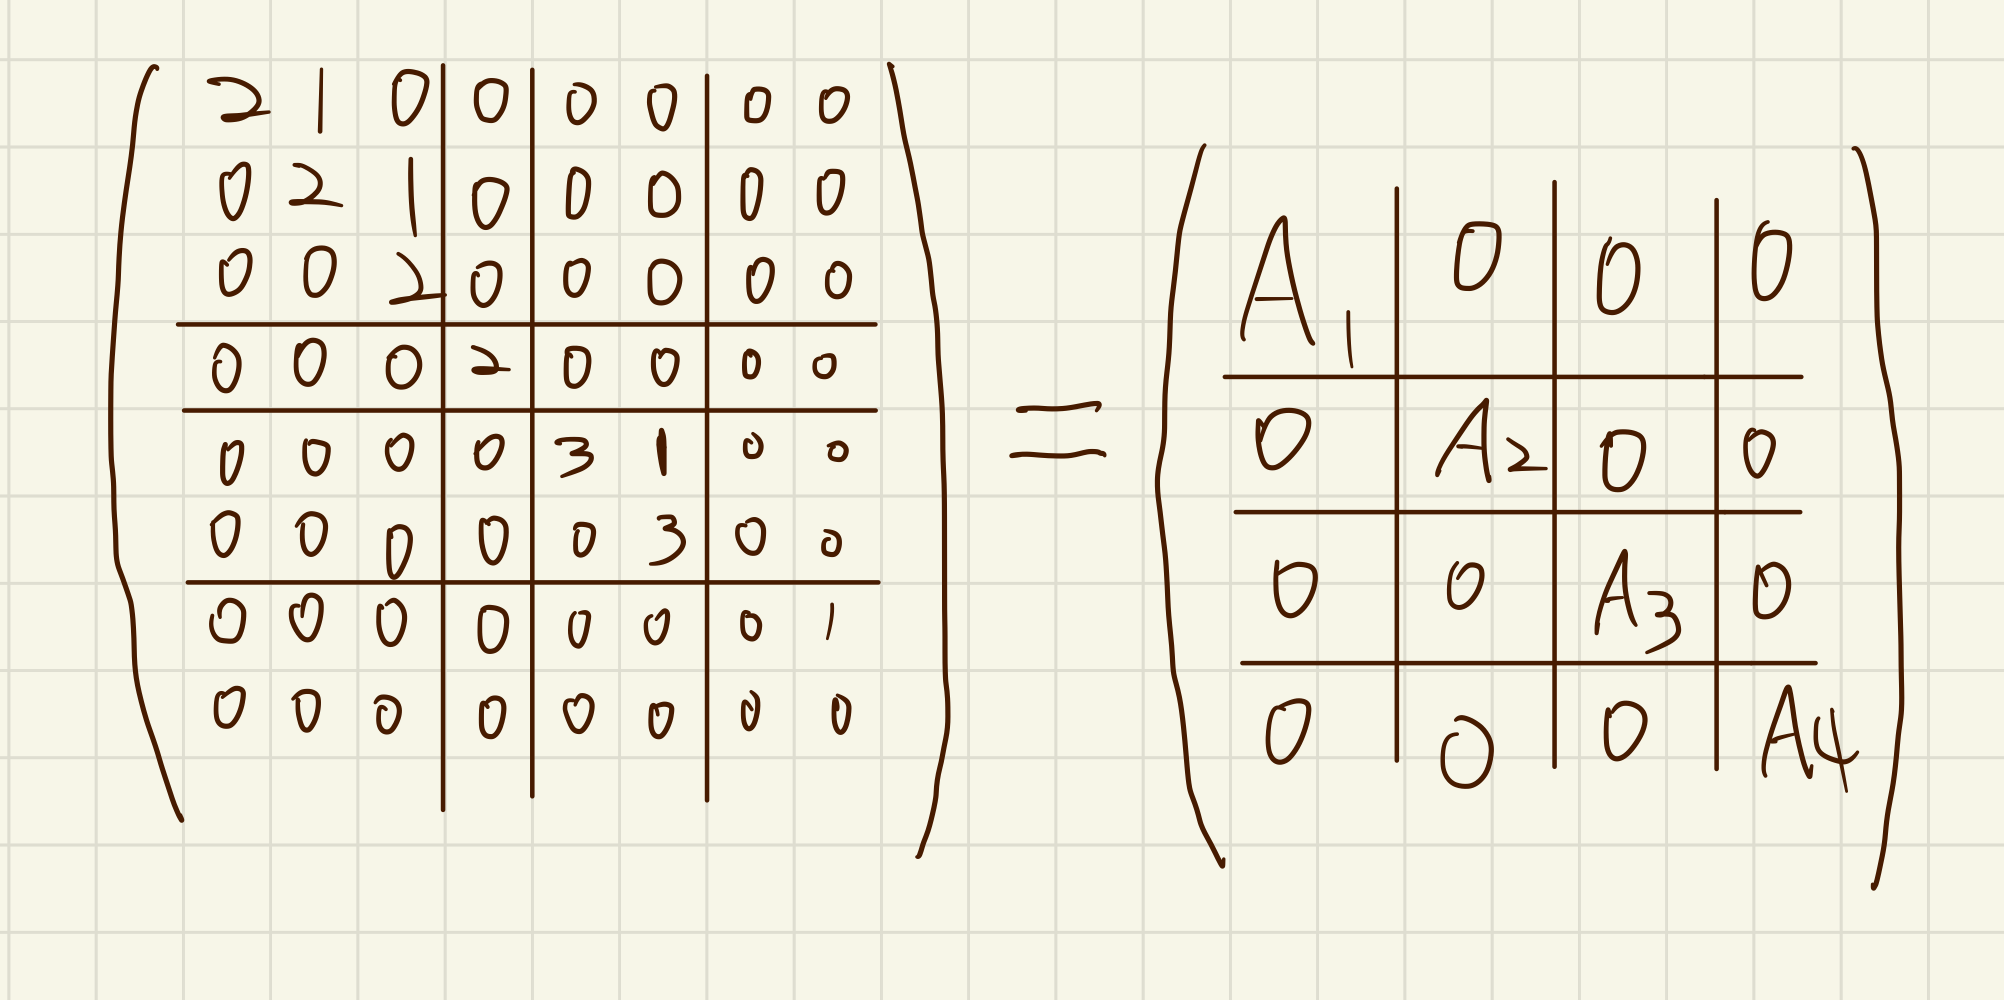 2 1 0 0 0 0 0 0
0 2 1 0 0 0 0 0
0 0 2 0 0 0 0 0
0 0 0 2 0 0 0 0
0 0 0 0 3 1 0 0
0 0 0 0 0 3 0 0
0 0 0 0 0 0 0 1
0 0 0 0 0 0 0 0
=
A1 0 0 0
0 A2 0 0
0 0 A3 0
0 0 0 A4